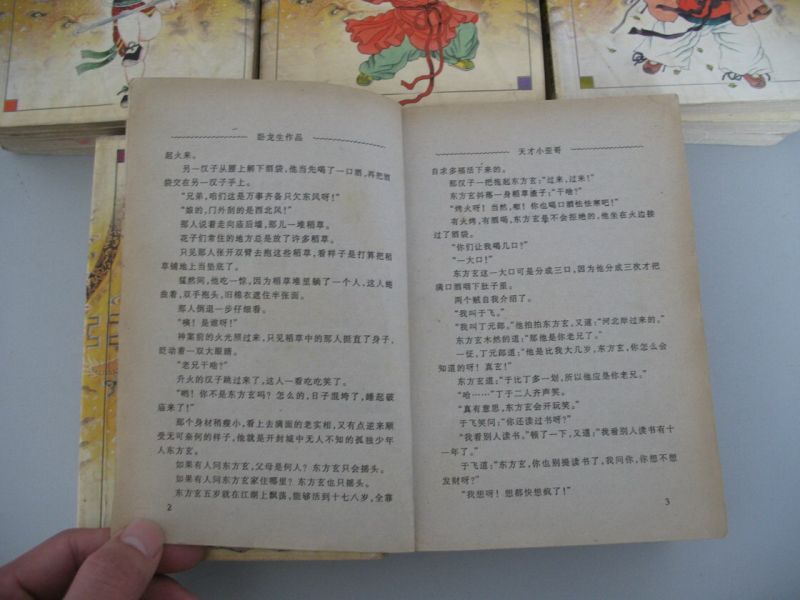 卧龙生作品
起火来。
另一汉子从腰上解下酒袋,他当先喝了一口酒,再把酒
袋交在另一汉子手上。
“兄弟,咱们这是万事齐备只欠东风呀!”
“娘的,门外刮的是西北风!”
那人说着走向庙后墙,那儿一堆稻草。
花子们常住的地方总是放了许多稻草。
只见那人张开双臂去抱这些稻草,看样子是打算把稻
草铺地上当垫底了。
猛然间,他吃一惊,因为稻草堆里躺了一个人,这人蜷
曲着,双手抱头,旧棉衣遮住半张面。
那人倒退一步仔细看。
“咦!是谁呀!”
神案前的火光照过来,只见稻草中的那人挺直了身子,
眨动着一双大眼睛。
“老兄干啥?”
升火的汉子跳过来了,这人一看吃吃笑了。
“哟!你不是东方玄吗?怎么的,日子混垮了,睡起破
庙来了!”
那个身材稍瘦小,看上去满面的老实相,又有点逆来顺
受无可奈何的样子,他就是开封城中无人不知的孤独少年
人东方玄。
如果有人问东方玄,父母是何人?东方玄只会摇头。
如果有人问东方玄家住哪里?东方玄也只摇头。
东方玄五岁就在江湖上飘荡,能够活到十七八岁,全靠
2
天才小歪哥
自求多福活下来的。
那汉子一把拖起东方玄:“过来,过来!”
东方玄抖落一身稻草渣子:“干啥?”
“烤火呀!当然,嘟!你也喝口酒怯怯寒吧!”
有火烤,有酒喝,东方玄是不会拒绝的,他坐在火边接
过了酒袋。
“你们让我喝几口?”
“一大口!”
东方玄这一大口可是分成三口,因为他分成三次才把
满口酒咽下肚子里。
两个贼自我介绍了。
“我叫于飞。”
“我叫丁元郎。”他拍拍东方玄,又道:“河北岸过来的。”
东方玄木然的道:“那他是你老兄了。”
一怔,丁元郎道:“他是比我大几岁,东方玄,你怎么会
知道的呀!真玄!”
东方玄道:“于比丁多一划,所以他应是你老兄。”
“哈……”丁于二人齐声笑。
“真有意思,东方玄会开玩笑。”
于飞笑问:“你还读过书呀?”
“我看别人读书。”顿了一下,又道:“我看别人读书有十
一年了。”
于飞道:“东方玄,你也别提读书了,我问你,你想不想
发财呀?”
“我想呀!想都快想疯了!”
3